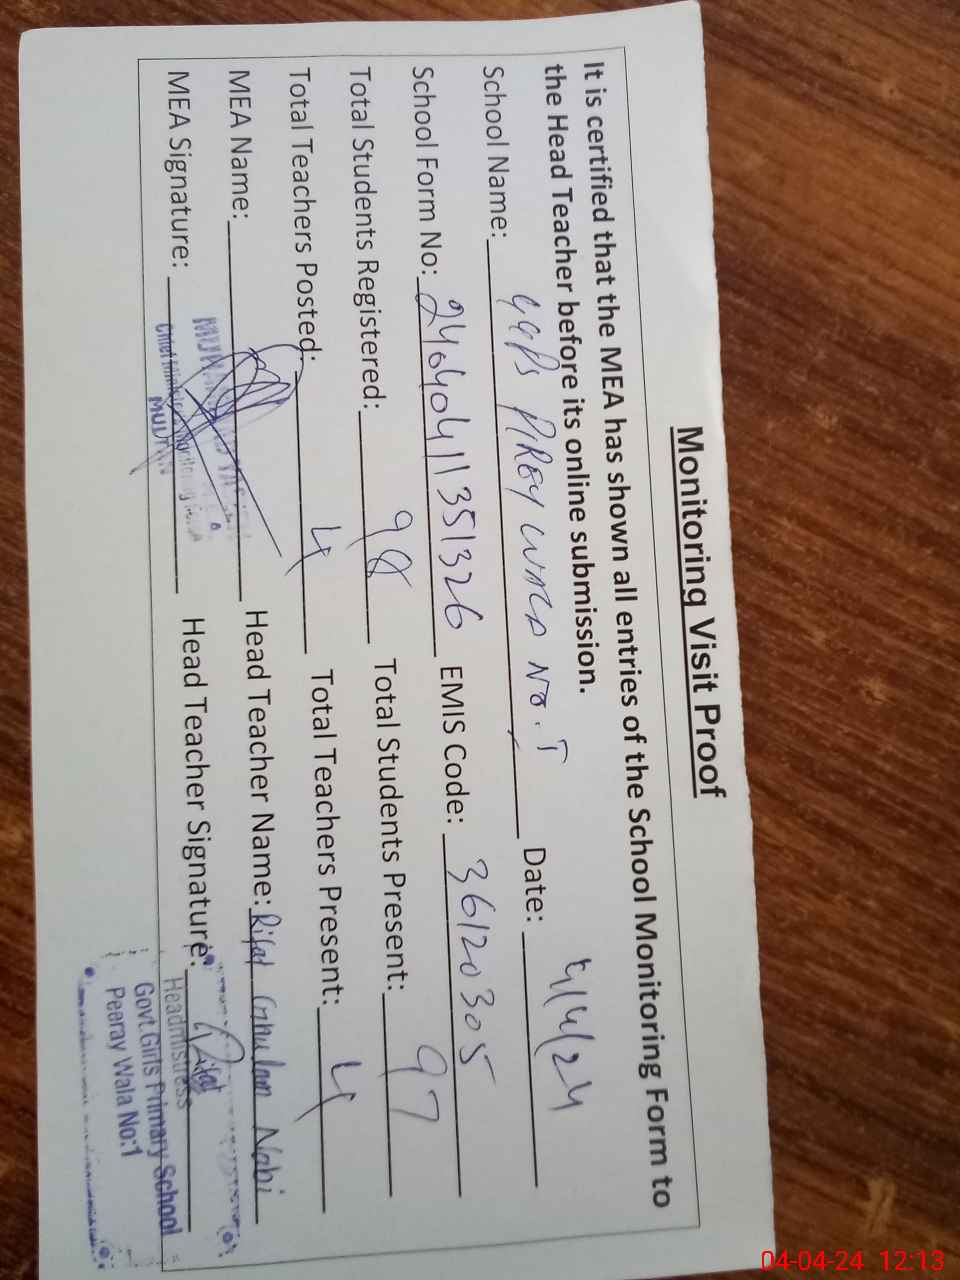 Monitoring Visit Proof
It is certified that the MEA has shown all entries of the School Monitoring Form to
the Head Teacher before its online submission.
School Name: GGPS PIREY WALA NO. 1 Date: 4/4/24
School Form No: EMIS Code: 36120305
Total Students Registered: 98 Total Students Present: 97
Total Teachers Posted: 4 Total Teachers Present: 4
MEA Name: Head Teacher Name: Rifat Ghulam Nabi
MEA Signature: Head Teacher Signature: Rifat
MULTAN
Headmistress
Govt.Girls Primary School
Peeray Wala No:1
04-04-24 12:13